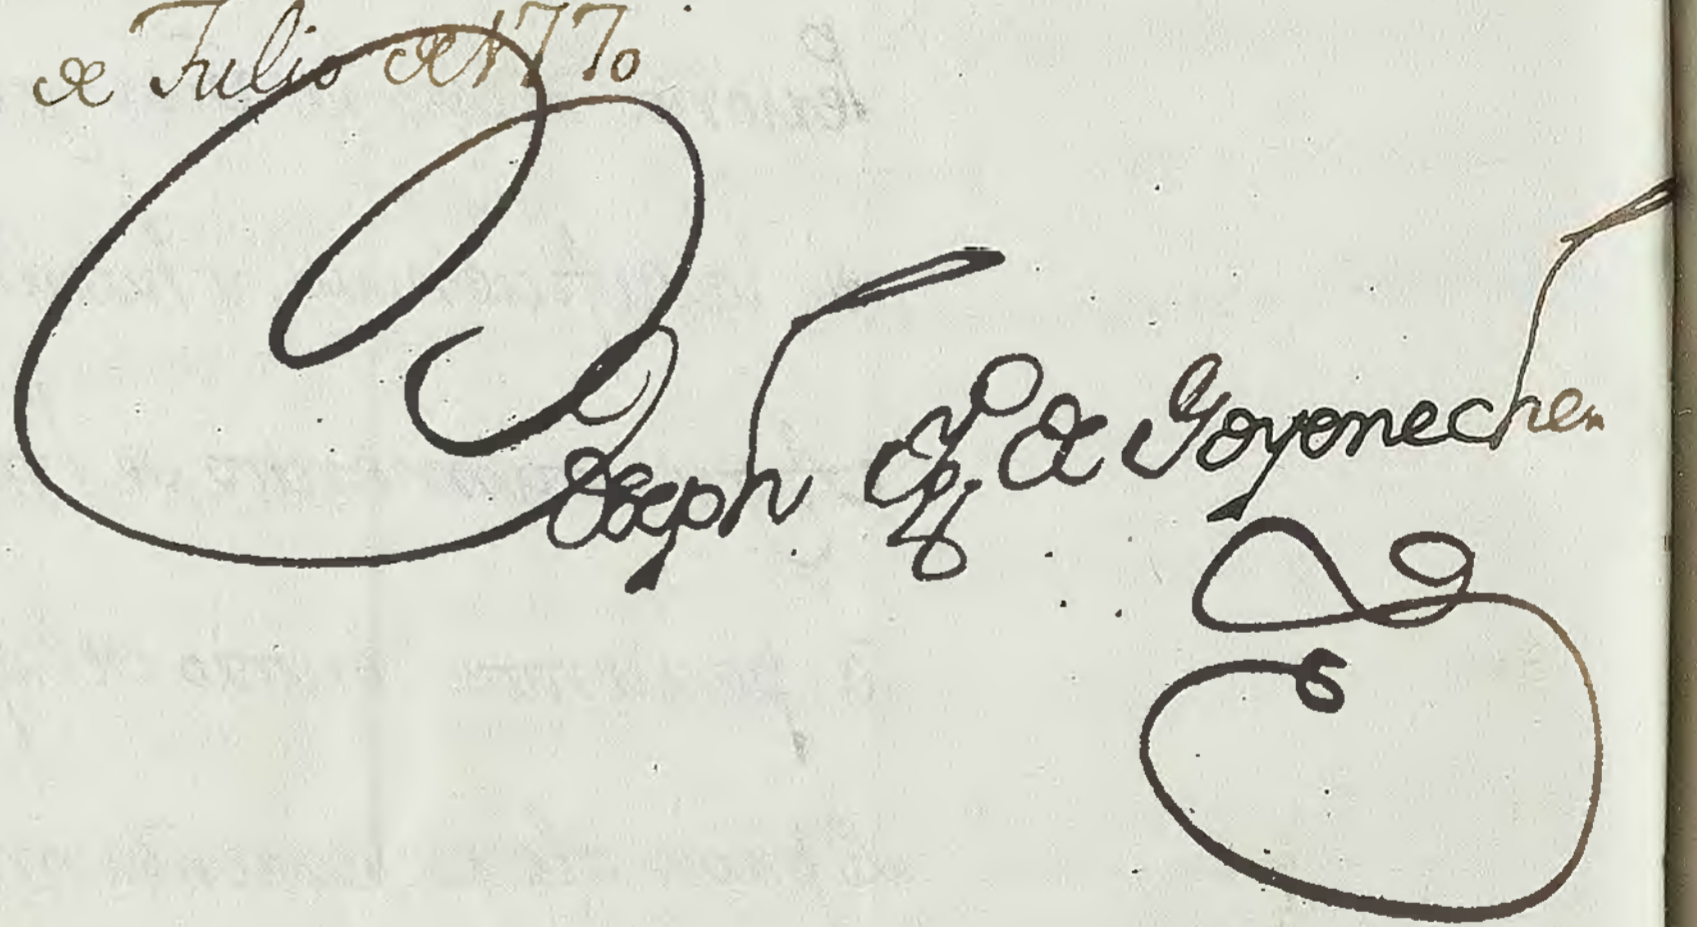 de Julio de 1770
Joseph de Goyonechea